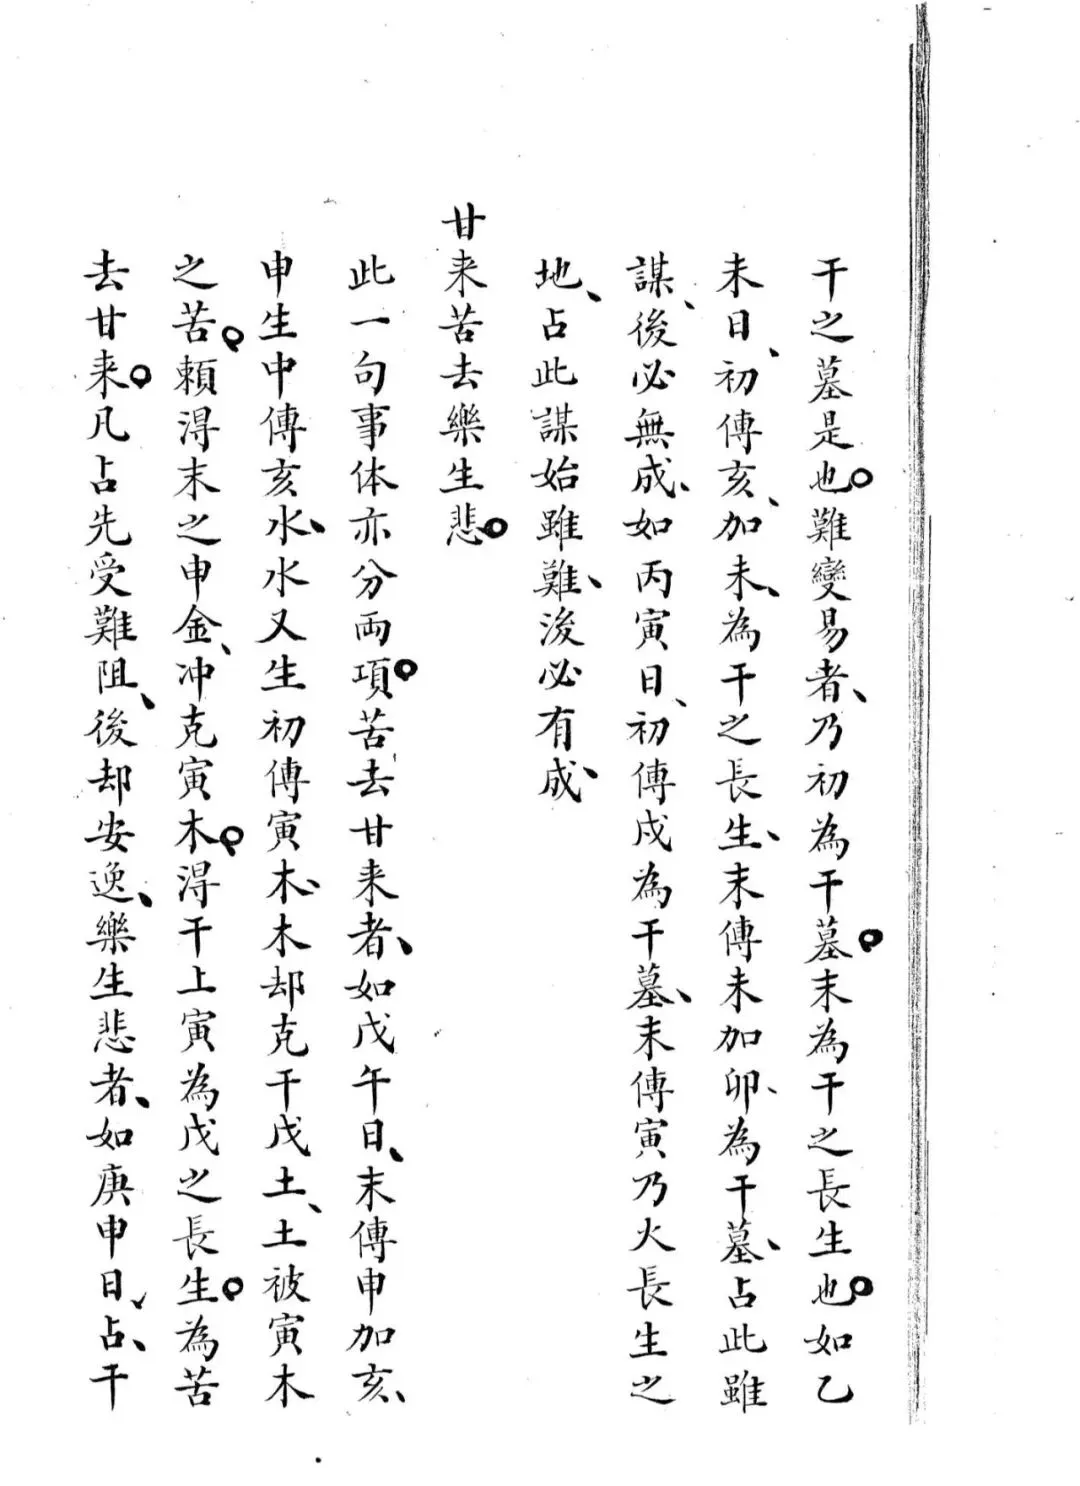 干之墓是也。難變易者、乃初為干墓。末為干之長生也。如乙
未日、初傳亥、加未、為干之長生、末傳未加卯、為干墓、占此雖
謀、後必無成、如丙寅日、初傳戌為干墓、末傳寅乃火長生之
地、占此謀始雖難、後必有成、
甘来苦去樂生悲。
此一句事体亦分両項。苦去甘来者、如戊午日、末傳申加亥、
申生中傳亥水、水又生初傳寅木、木却克干戊土、土被寅木
之苦。頼得末之申金、冲克寅木。得干上寅為戊之長生。為苦
去甘来。凡占先受難阻、後却安逸、樂生悲者、如庚申日、占、干